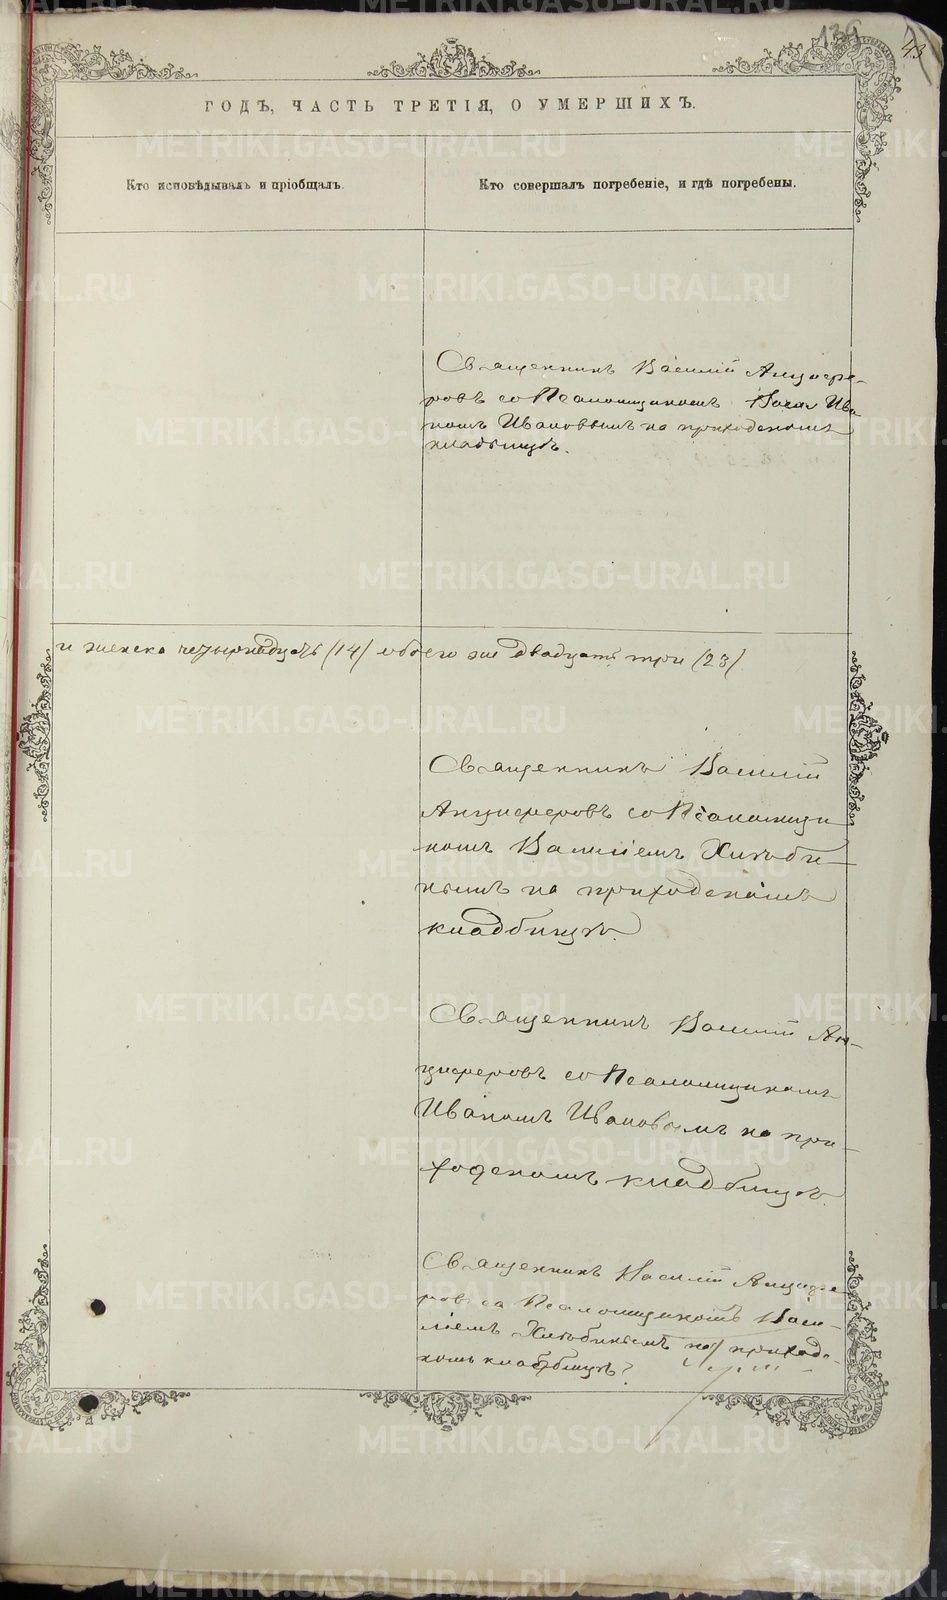 136
43
ГОДЪ, ЧАСТЬ ТРЕТІЯ, О УМЕРШИХЪ.
Кто исповѣдывалъ и пріобщалъ.
Кто совершалъ погребеніе, и гдѣ погребены.
Священникъ Василій Анцифе-
ровъ со Псаломщикомъ Ива
номъ Ивановымъ на приходскомъ
кладбищѣ.
и женска четырнадцать (14) обоего же двадцать три (23)
Священникъ Василій
Анциферовъ со Псаломщи
комъ Василіемъ Хлѣби-
нымъ на приходскомъ
кладбищѣ.
Священникъ Василій Ан-
циферовъ со Псаломщикомъ
Иваномъ Ивановымъ на при-
ходскомъ кладбищѣ.
Священникъ Василій Анцифе-
ровъ со Псаломщикомъ Васи-
ліемъ Хлѣбинымъ на приход-
скомъ кладбищѣ
METRIKI.GASO-URAL.RU